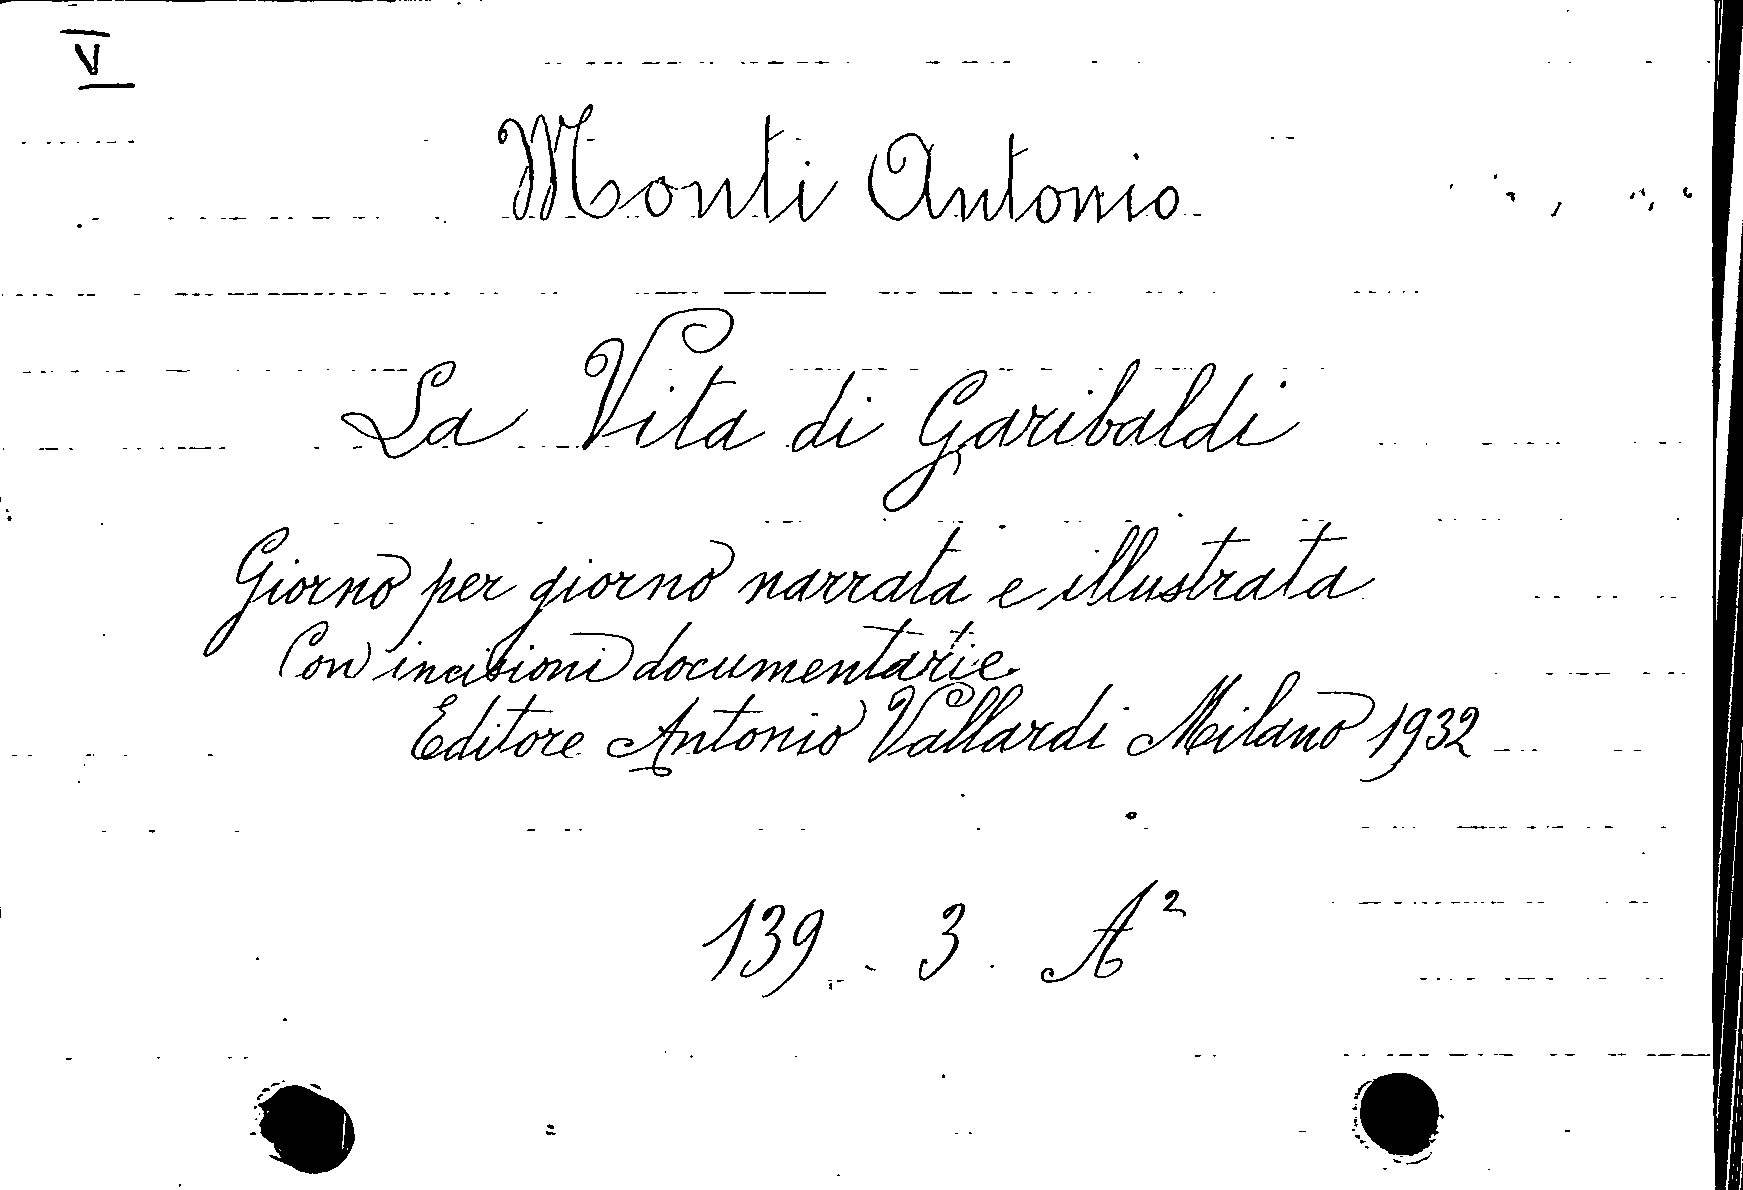 V
Monti Antonio
La Vita di Garibaldi
Giorno per giorno narrata e illustrata
Con incisioni documentarie.
Editore Antonio Vallardi Milano 1932
139 - 3. A²